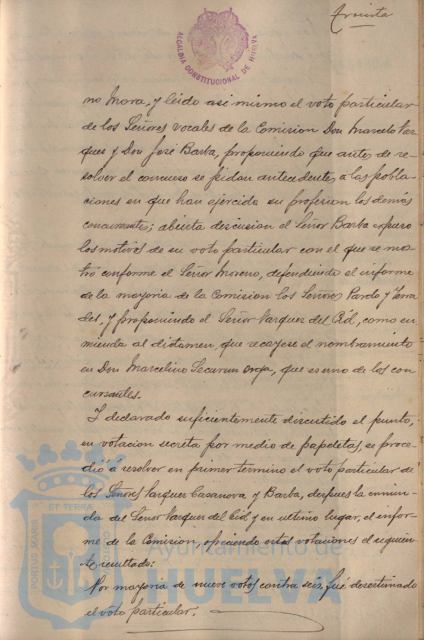 Treinta
ALCALDIA CONSTITUCIONAL DE HUELVA
no Mora, y leido asi mismo el voto particular
de los Señores vocales de la Comision Don Marcelo Vaz
ques y Don José Barba, proponiendo que antes de re-
solver el concurso se pidan antecedentes a las pobla-
ciones en que han ejercido su profesion los demás
concursantes; abierta discusion el Señor Barba expuso
los motivos de su voto particular con el que se mos-
tró conforme el Señor Moreno, defendiendo el informe
de la mayoria de la Comision los Señores Pardo y
des, y proponiendo el Señor Vazquez del Cid, como en
mienda al dictamen, que recayese el nombramiento
en Don Marcelino, que es uno de los con
cursantes.
Y declarado suficientemente discutido el punto,
en votacion secreta por medio de papeletas, se proce
dió a resolver en primer termino el voto particular de
los Señores Vazquez Casanova y Barba, despues la enmien
da del Señor Vazquez del Cid y en ultimo lugar, el infor
me de la Comision, ofreciendo estas votaciones el siguien
te resultado:
Por mayoria de nueve votos contra seis, fué desestimado
el voto particular.
PORTUS MARIS ET TERRAE
Ayuntamiento de
HUELVA